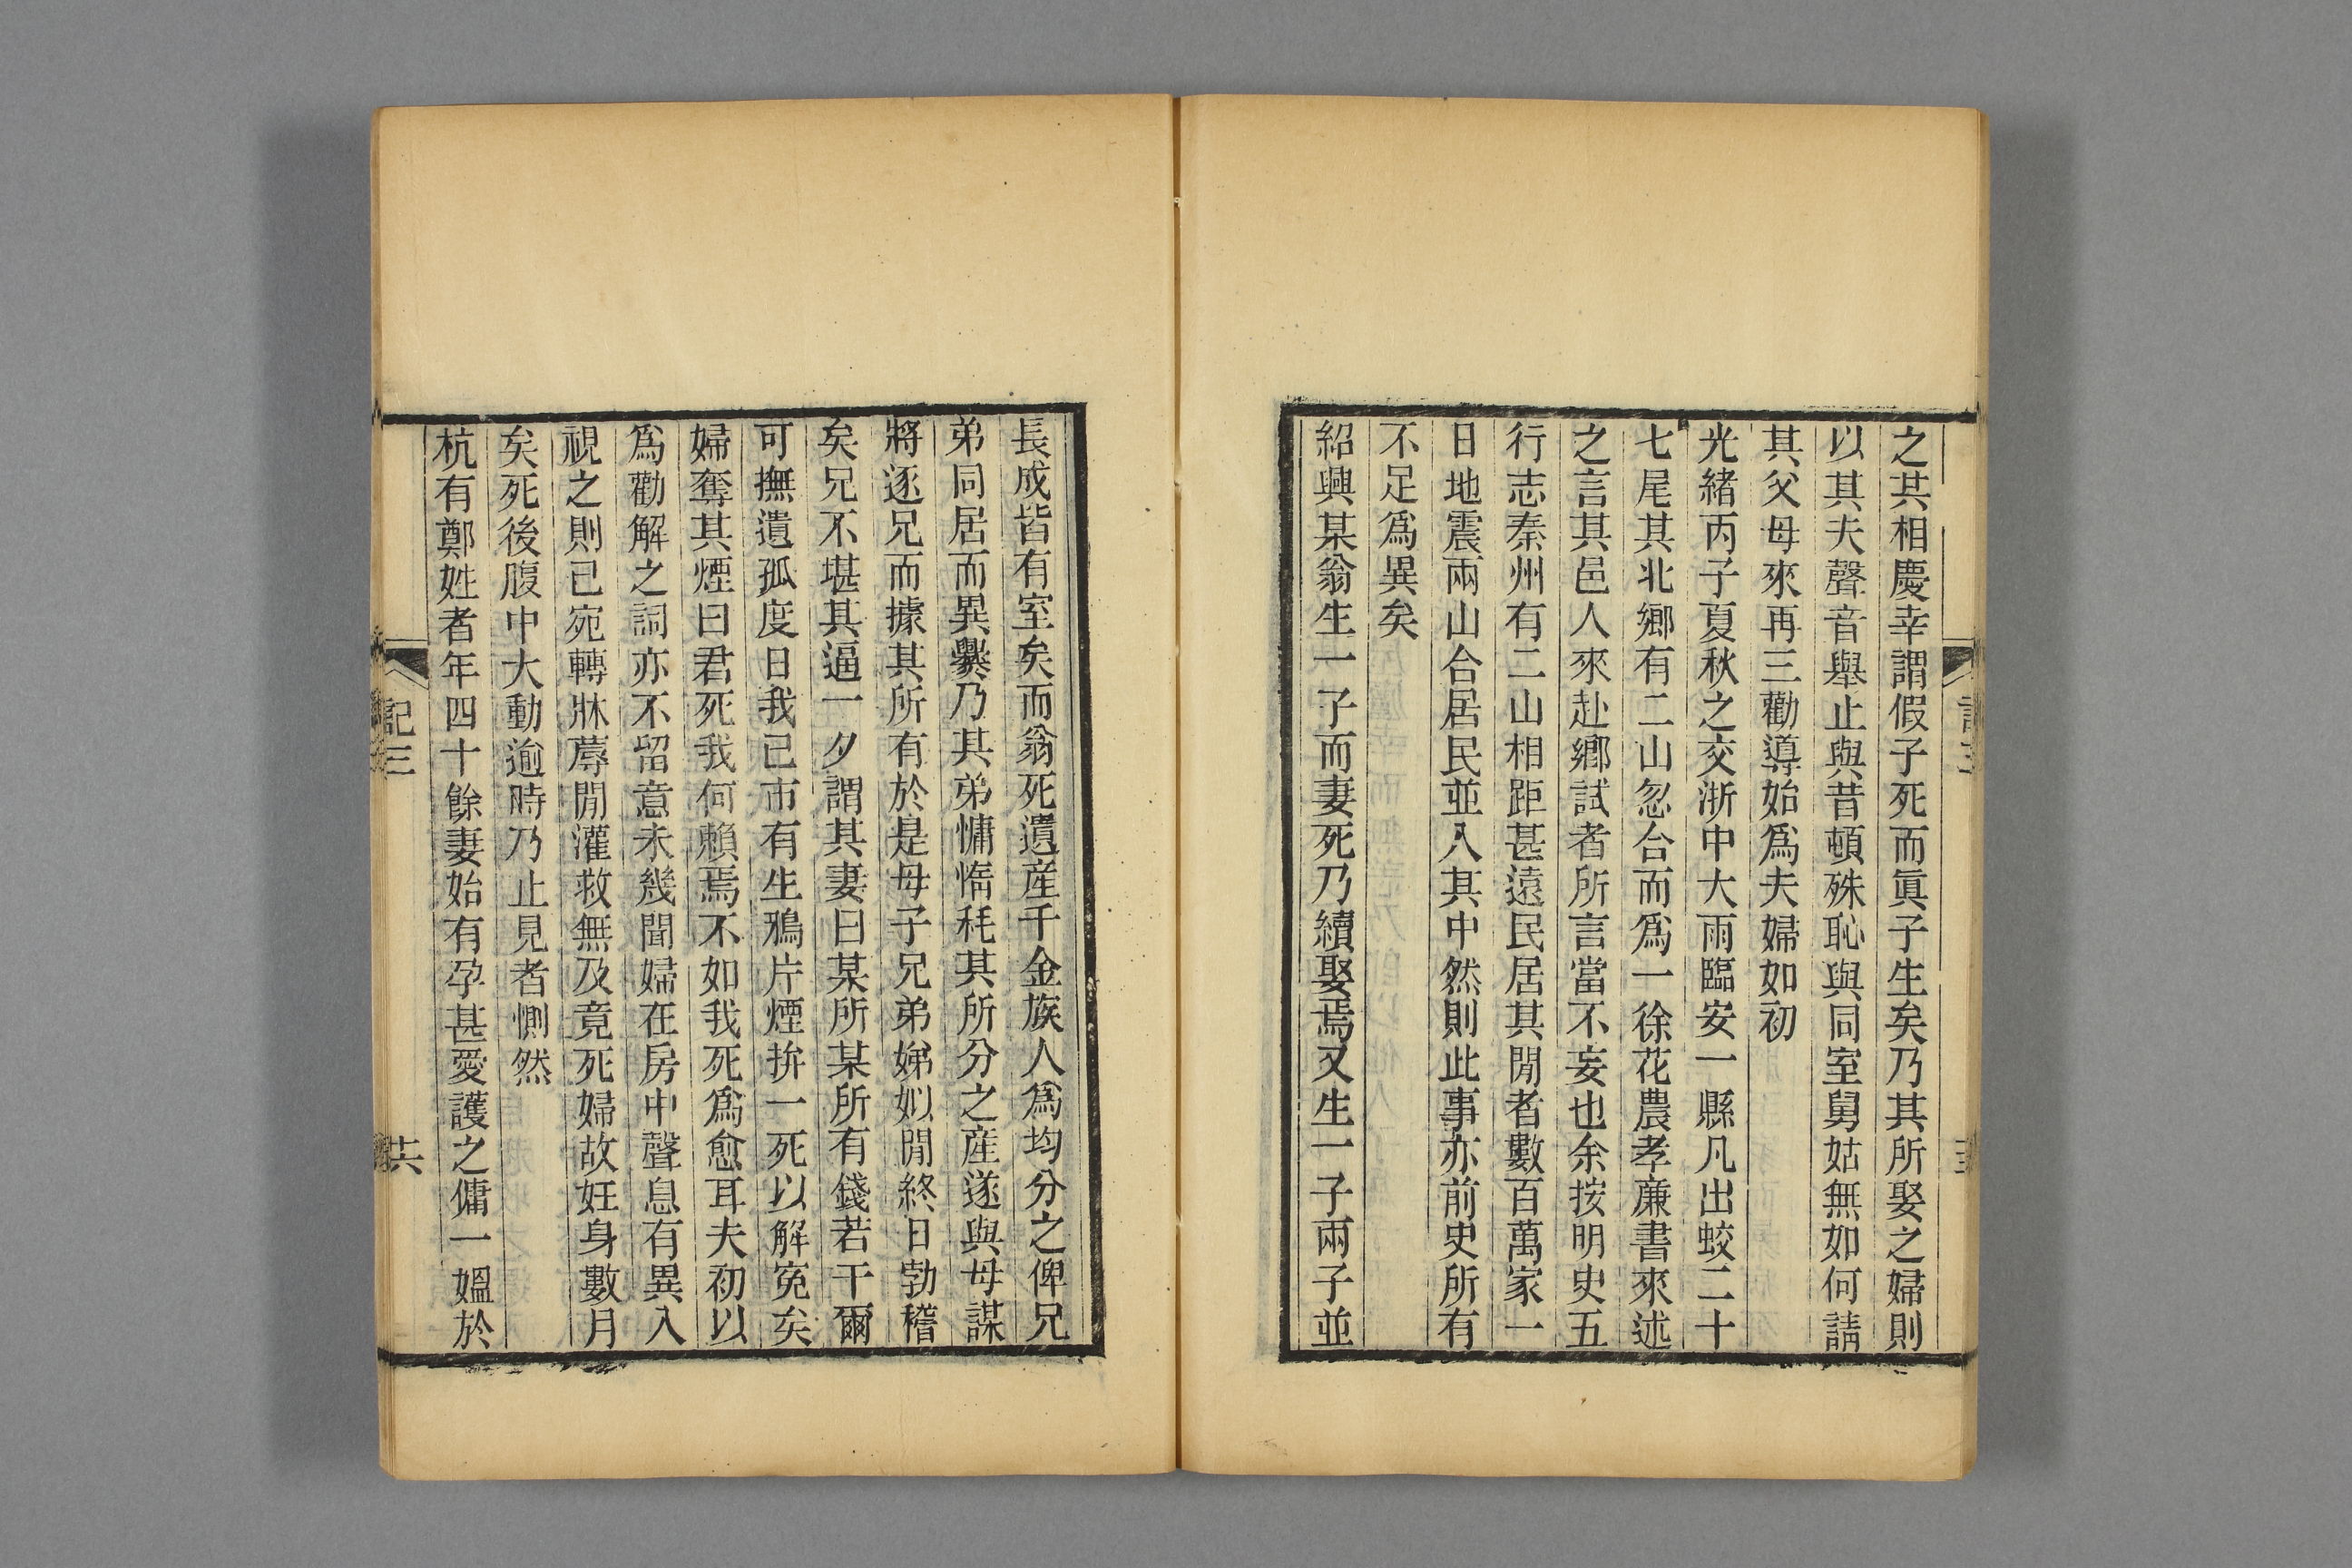 之共相慶幸謂假子死而眞子生矣乃其所娶之婦則
以其夫聲音舉止與昔頓殊恥與同室舅姑無如何請
其父母來再三勸導始爲夫婦如初
光緒丙子夏秋之交浙中大雨臨安一縣凡出蛟二十
七尾其北鄉有二山忽合而爲一徐花農孝廉書來述
之言其邑人來赴鄉試者所言當不妄也余按明史五
行志秦州有二山相距甚遠民居其閒者數百萬家一
日地震兩山合居民並入其中然則此事亦前史所有
不足爲異矣
紹興某翁生一子而妻死乃續娶焉又生一子兩子並
長成皆有室矣而翁死遺產千金族人爲均分之俾兄
弟同居而異爨乃其弟慵惰耗其所分之產遂與母謀
將逐兄而據其所有於是母子兄弟娣姒閒終日勃谿
矣兄不堪其逼一夕謂其妻曰某所某所有錢若干爾
可撫遺孤度日我已市有生鴉片煙拚一死以解冤矣
婦奪其煙曰君死我何賴焉不如我死爲愈耳夫初以
爲勸解之詞亦不留意未幾聞婦在房中聲息有異入
視之則已宛轉牀蓐閒灌救無及竟死婦故妊身數月
矣死後腹中大動逾時乃止見者惻然
杭有鄭姓者年四十餘妻始有孕甚愛護之傭一媼於
記三
共